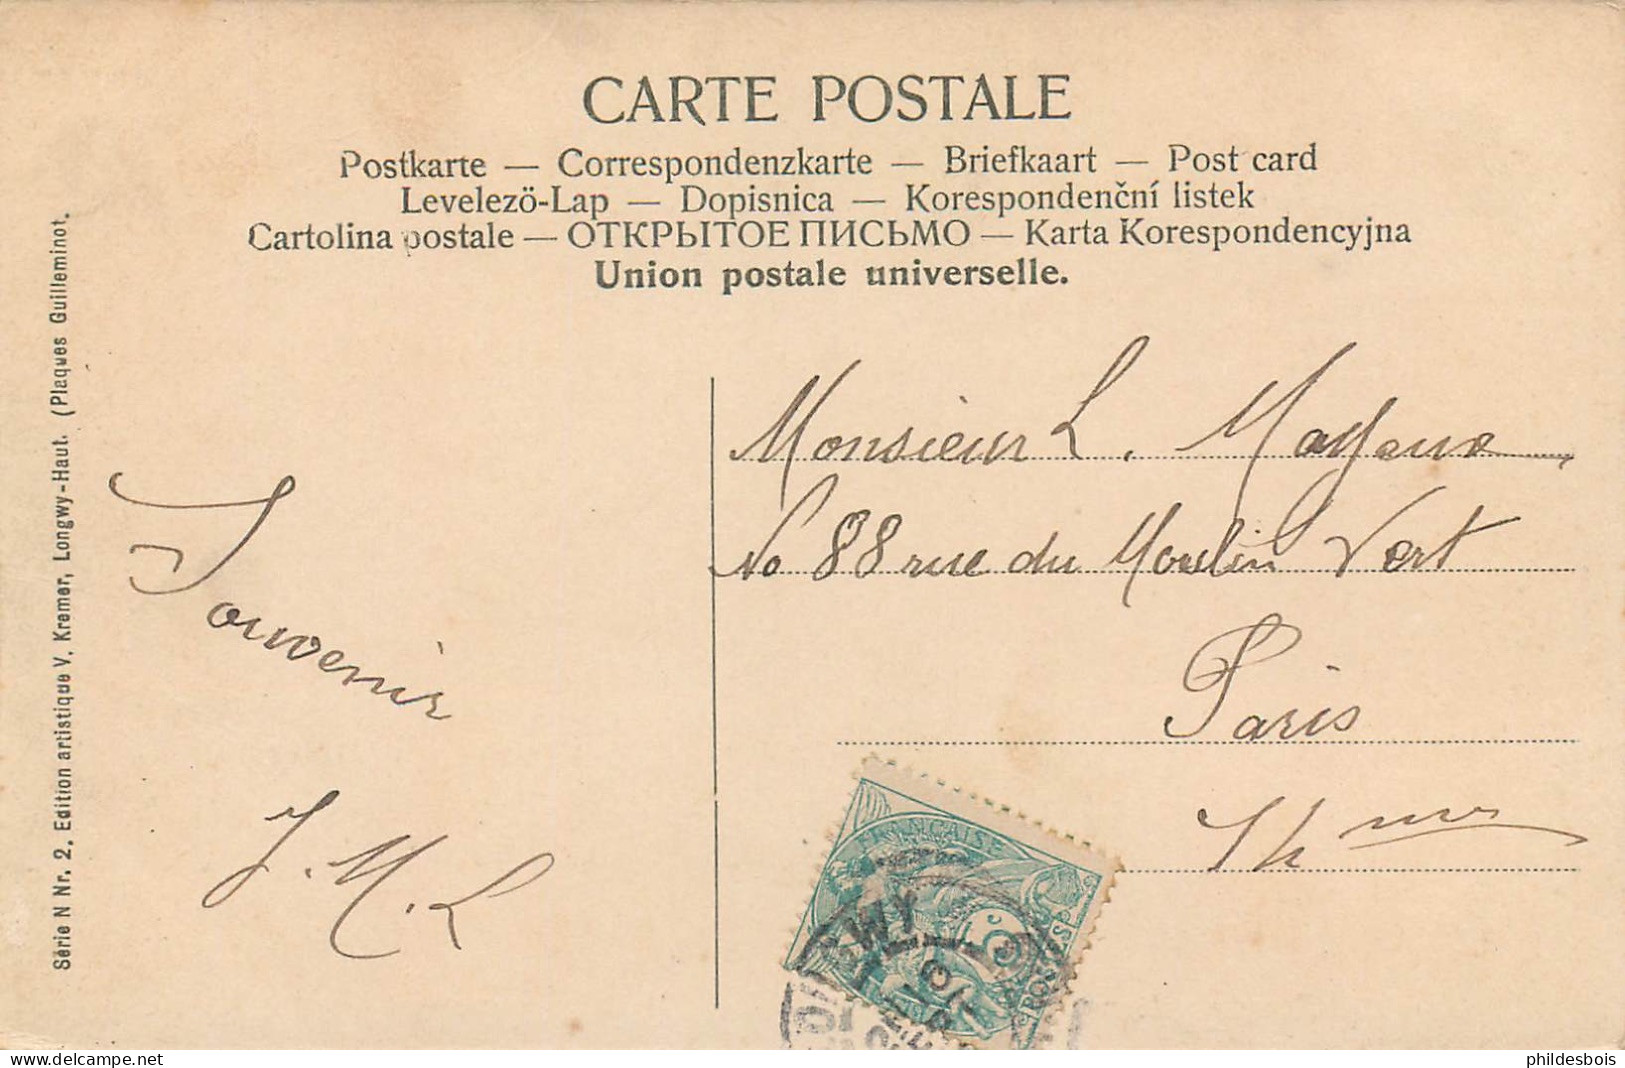 CARTE POSTALE
Postkarte — Correspondenzkarte — Briefkaart — Post card
Levelezö-Lap — Dopisnica — Korespondenční listek
Cartolina postale — ОТКРЫТОЕ ПИСЬМО — Karta Korespondencyjna
Union postale universelle.
Série N Nr. 2. Edition artistique V. Kremer, Longwy-Haut. (Plaques Guilleminot.
Souvenir
J. M. L
Monsieur L.
No 88 rue du Moulin Vert
Paris
FRANÇAISE
5c
POSTES
WY
delcampe.net
phildesbois